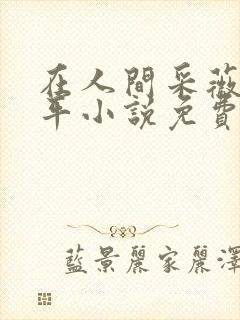 在人間采薇
年小說免費
藍景麗家麗澤